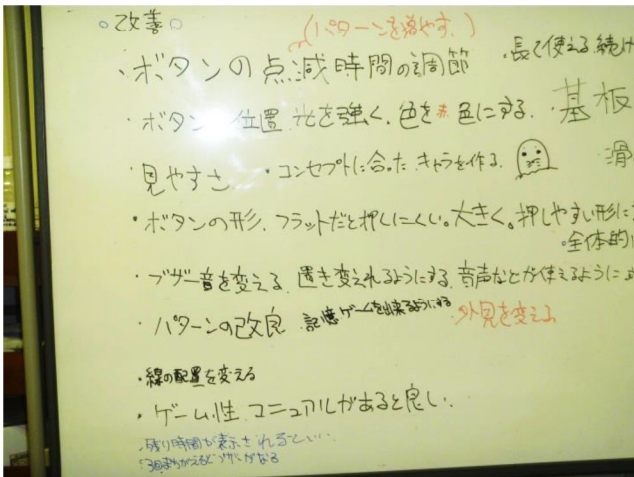 ○改善○
(パターンを増やす。)
・ボタンの点減時間の調節
・長く使える 続け
・ボタン 位置 光を強く、色を赤色にする。
・基板
見やすさ
・コンセプトに合った キャラを作る。
滑
・ボタンの形、フラットだと押しにくい。大きく。押しやすい形に
。全体的
・ブザー音を変える、置き変えれるようにする、音声などが使えるように
・パターンの改良 記憶ゲームを出来るようにする
外見を変える
・線の配置を変える
・ゲーム性、マニュアルがあると良い。
・残り時間が表示されるといい
・3回まちがえるとブザーがなる